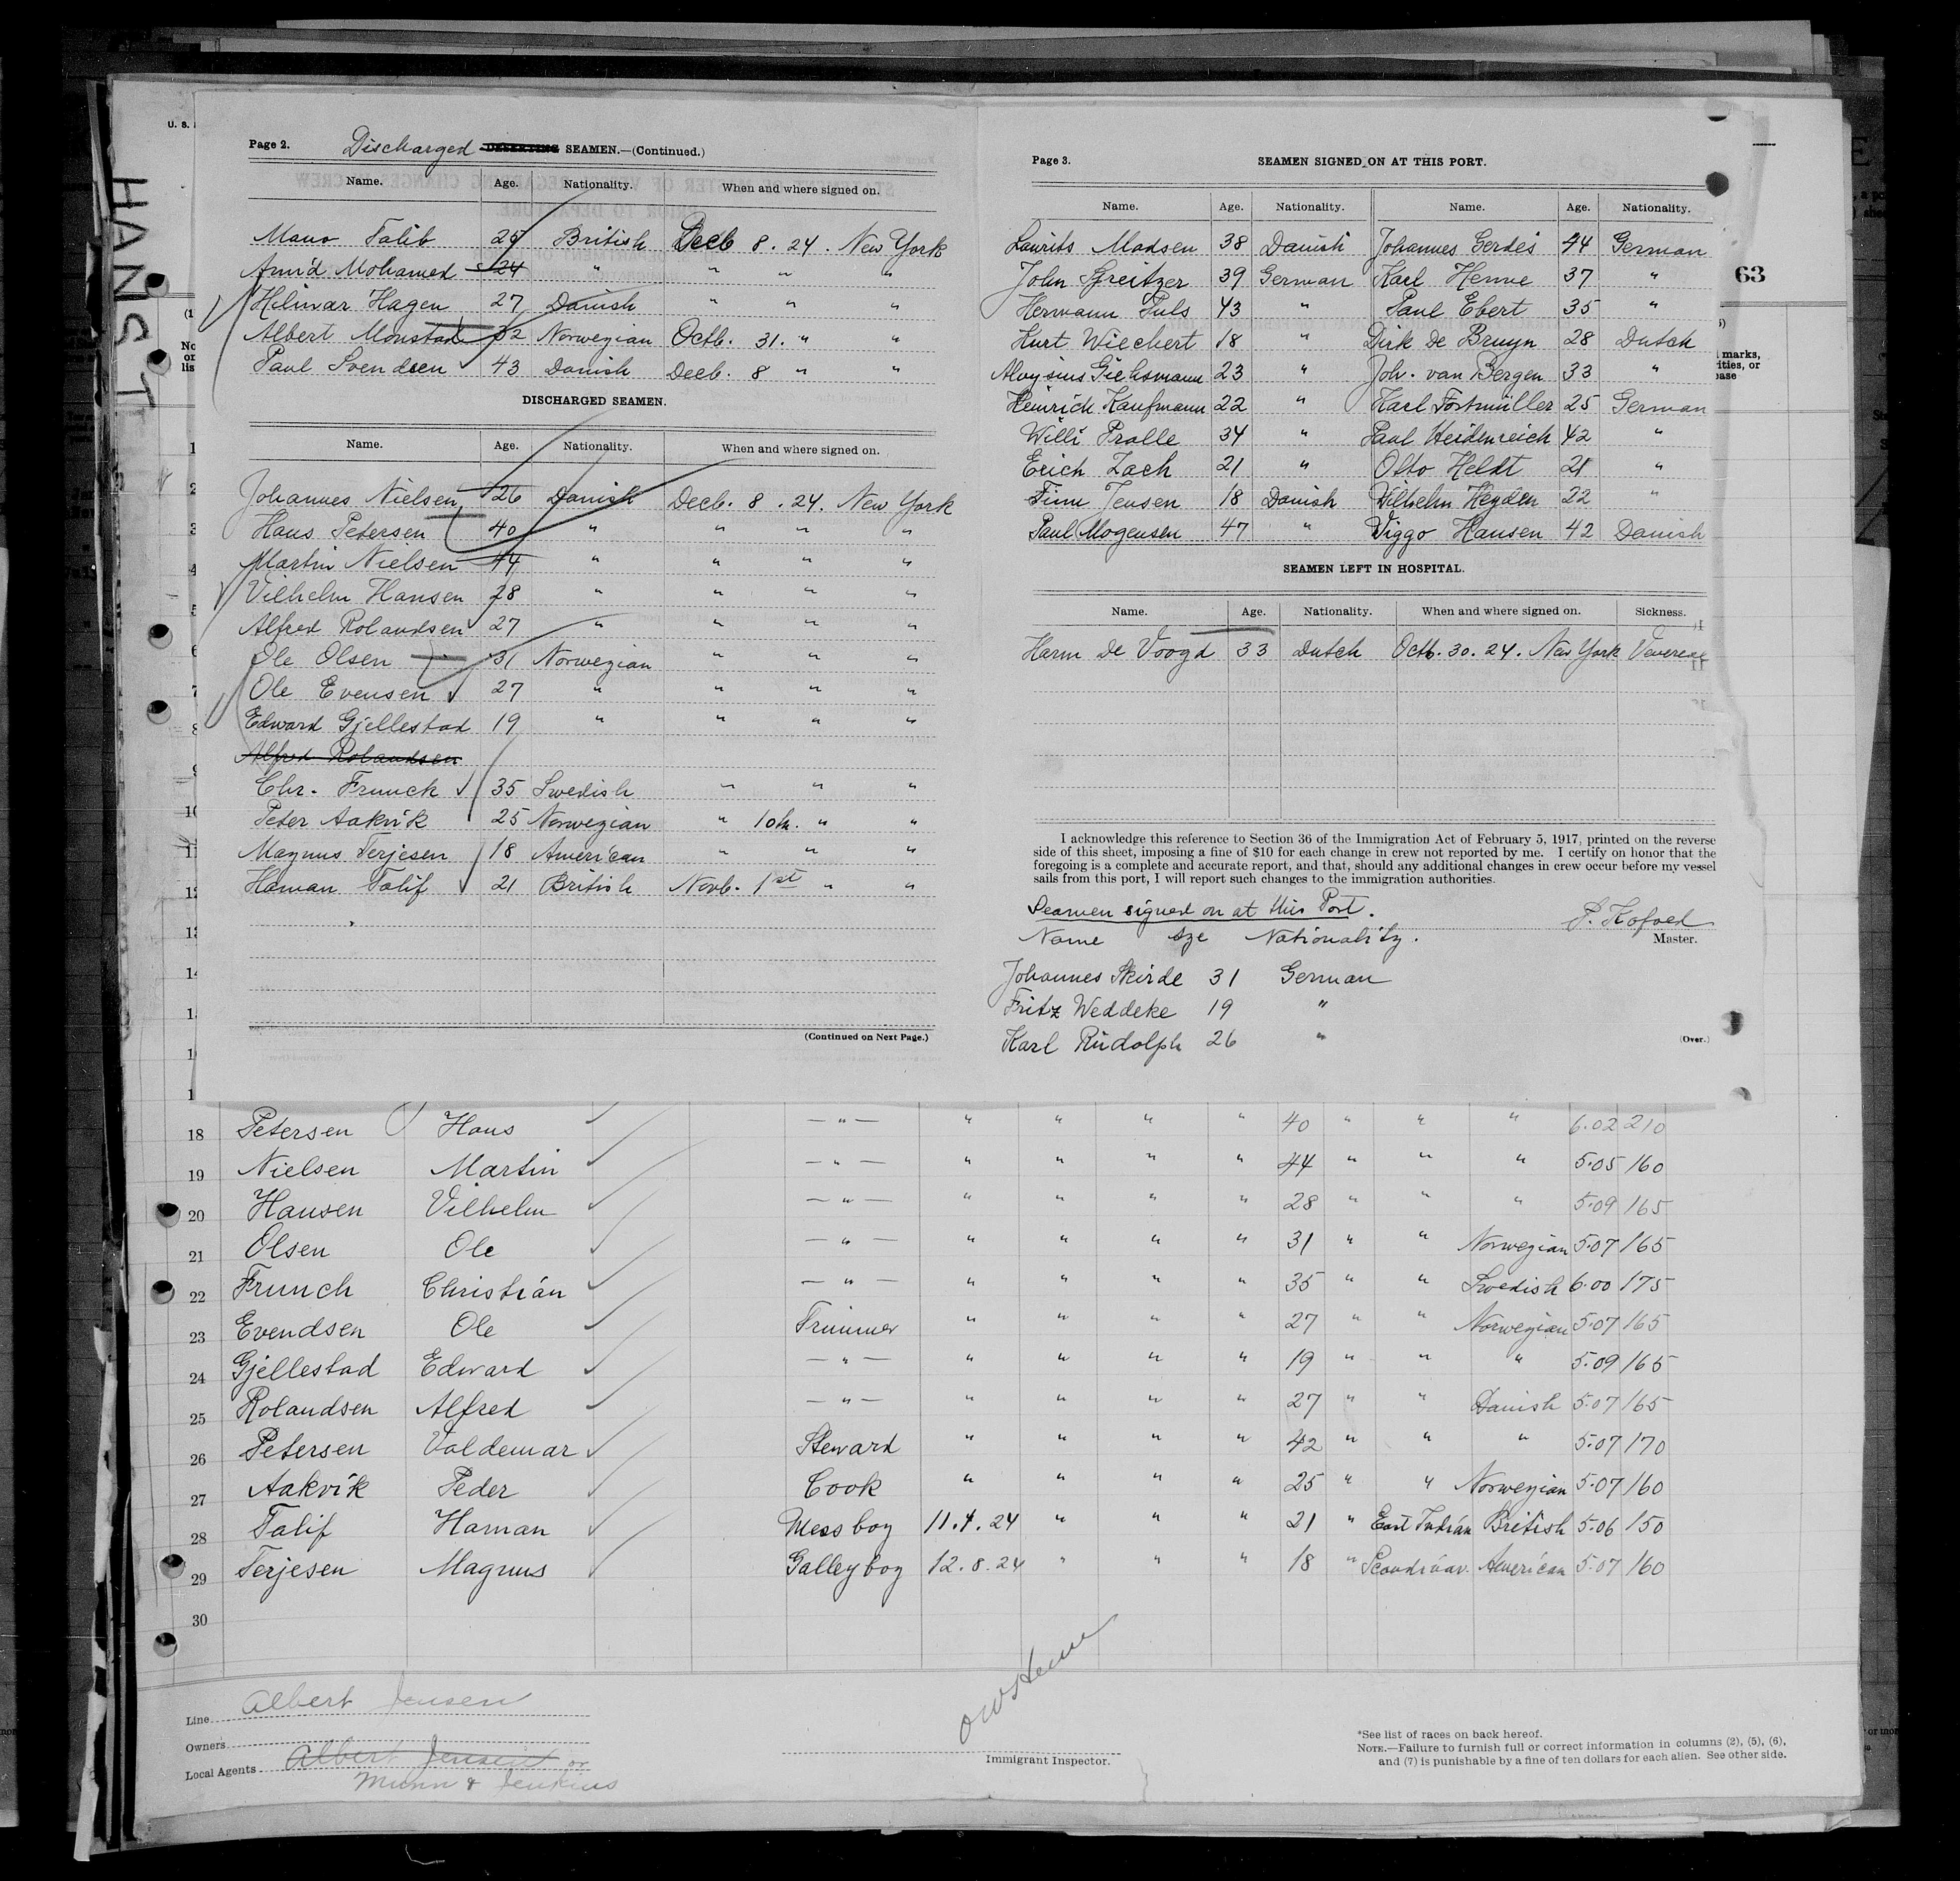 U. S.
HANS T
Page 2. Discharged DESERTING SEAMEN.—(Continued.)
Name. Age. Nationality. When and where signed on.
Mano Talib 25 British Decb 8. 24. New York
Amid Mohamed 24 " " " "
Hilmar Hagen 27 Danish " " "
Albert Monstad 32 Norwegian Octb. 31. " "
Paul Svendsen 43 Danish Decb. 8 " "
DISCHARGED SEAMEN.
Name. Age. Nationality. When and where signed on.
Johannes Nielsen 26 Danish Decb. 8. 24. New York
Hans Petersen 40 " " " "
Martin Nielsen 44 " " " "
Vilhelm Hansen 28 " " " "
Alfred Rolandsen 27 " " " "
Ole Olsen 31 Norwegian " " "
Ole Evensen 27 " " " "
Edward Gjellestad 19 " " " "
Alfred Rolandsen
Chr. Frunck 35 Swedish " " "
Peter Aakvik 25 Norwegian " 10th. " "
Magnus Terjesen 18 American " " "
Haman Talif 21 British Novb. 1st " "
(Continued on Next Page.)
Page 3. SEAMEN SIGNED ON AT THIS PORT.
Name. Age. Nationality. Name. Age. Nationality.
Laurits Madsen 38 Danish Johannes Gerdes 44 German
John Spreitzer 39 German Karl Henne 37 "
Hermann Puls 43 " Paul Ebert 35 "
Kurt Wiechert 18 " Dirk De Bruyn 28 Dutch
Aloysius Giehsmann 23 " Joh. van Bergen 33 "
Heinrich Kaufmann 22 " Karl Fortmüller 25 German
Willi Pralle 34 " Paul Heidenreich 42 "
Erich Zach 21 " Otto Heldt 21 "
Finn Jensen 18 Danish Wilhelm Heyden 22 "
Paul Mogensen 47 " Viggo Hansen 42 Danish
SEAMEN LEFT IN HOSPITAL.
Name. Age. Nationality. When and where signed on. Sickness.
Harm De Voogd 33 Dutch Octb. 30. 24. New York
I acknowledge this reference to Section 36 of the Immigration Act of February 5, 1917, printed on the reverse
side of this sheet, imposing a fine of $10 for each change in crew not reported by me. I certify on honor that the
foregoing is a complete and accurate report, and that, should any additional changes in crew occur before my vessel
sails from this port, I will report such changes to the immigration authorities.
Seamen signed on at this Port. P. Kofoed
Name Age Nationality. Master.
Johannes Skirde 31 German
Fritz Weddeke 19 "
Karl Rudolph 26 "
(Over.)
63
marks,
ities, or
ase
18 Petersen Hans — " — " " " " 40 " " " 6.02 210
19 Nielsen Martin — " — " " " " 44 " " " 5.05 160
20 Hansen Vilhelm — " — " " " " 28 " " " 5.09 165
21 Olsen Ole — " — " " " " 31 " " Norwegian 5.07 165
22 Frunch Christian — " — " " " " 35 " " Swedish 6.00 175
23 Evendsen Ole Trimmer " " " " 27 " " Norwegian 5.07 165
24 Gjellestad Edward — " — " " " " 19 " " " 5.09 165
25 Rolandsen Alfred — " — " " " " 27 " " Danish 5.07 165
26 Petersen Valdemar Steward " " " " 42 " " " 5.07 170
27 Aakvik Peder Cook " " " " 25 " " Norwegian 5.07 160
28 Talif Haman Mess boy 11.4.24 " " " 21 " East Indian British 5.06 150
29 Terjesen Magnus Galley boy 12.8.24 " " " 18 " Scandinav. American 5.07 160
30
Line Albert Jensen
Owners
Local Agents Albert Jensen or
Munn & Jenkins
Immigrant Inspector.
*See list of races on back hereof.
NOTE.—Failure to furnish full or correct information in columns (2), (5), (6),
and (7) is punishable by a fine of ten dollars for each alien. See other side.